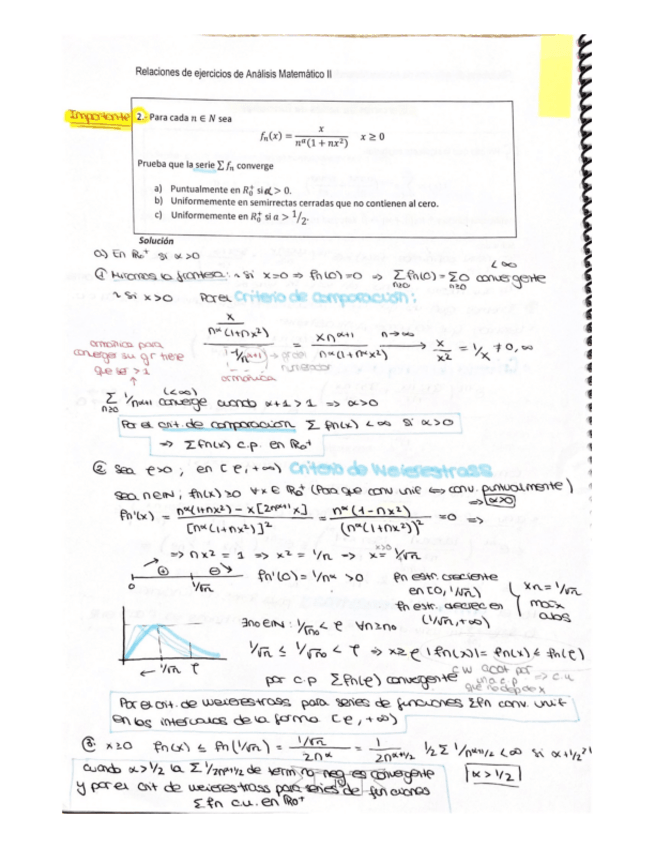 Relaciones de ejercicios de Análisis Matemático II
Importante 2.- Para cada n ∈ N sea
fₙ(x) = x / (nᵅ(1 + nx²))   x ≥ 0
Prueba que la serie ∑ fₙ converge
a) Puntualmente en R₀⁺ si α > 0.
b) Uniformemente en semirrectas cerradas que no contienen al cero.
c) Uniformemente en R₀⁺ si a > 1/2.
Solución
a) En R₀⁺ si α>0
① Miramos la frontera: ~ si x=0 ⇒ fn(0)=0 ⇒ ∑ fn(0) = ∑ 0 convergente
n≥0 n≥0 <∞
~ Si x>0 Por el Criterio de comparación:
x / (nᵅ(1+nx²)) / (1/nᵅ⁺¹) = xnᵅ⁺¹ / (nᵅ(1+nx²)) n→∞ ⟶ x/x² = 1/x ≠ 0, ∞
armónica para
converger su gr tiene
que ser > 1
numerador
armónica
∑ 1/nᵅ⁺¹ (<∞) converge cuando α+1 > 1 ⇒ α>0
n≥0
Por el crit. de comparación ∑ fn(x) < ∞ si α>0
⇒ ∑ fn(x) c.p. en R₀⁺
② Sea ρ>0 ; en [ρ, +∞) Criterio de Weierestrass
sea n∈N, fn(x) ≥0 ∀x∈R₀⁺ (Para que conv unif ⇔ conv. puntualmente)
⇒ α>0
fn'(x) = nᵅ(1+nx²) - x[2nᵅ⁺¹x] / [nᵅ(1+nx²)]² = nᵅ(1-nx²) / (nᵅ(1+nx²))² = 0 ⇒
⇒ nx² = 1 ⇒ x² = 1/n ⇒ x = 1/√n
x>0
⊕ ⊖
0 1/√n
fn'(0) = 1/nᵅ > 0
fn estr. creciente
en [0, 1/√n)
fn estr. decrec en
(1/√n, +∞)
xn = 1/√n
max
abs
∃n₀∈N : 1/√n₀ < ρ ∀n≥n₀
1/√n ≤ 1/√n₀ < ρ ⇒ x≥ρ |fn(x)| = fn(x) ≤ fn(ρ)
← 1/√n ρ
por c.p ∑fn(ρ) convergente
c w acot por
una c.p. ⇒ c.u
que no dep de x
Por el crit. de weierestrass para series de funciones ∑fn conv. unif
en los intervalos de la forma [ρ, +∞)
③ x≥0 fn(x) ≤ fn(1/√n) = (1/√n) / 2nᵅ = 1 / 2nᵅ⁺¹/² 1/2 ∑ 1/nᵅ⁺¹/² < ∞ si α+1/2 >1
cuando α>1/2 la ∑ 1/2nᵅ⁺¹/² de termino neg es convergente
α > 1/2
y por el crit de weierestrass para series de funciones
∑fn c.u. en R₀⁺